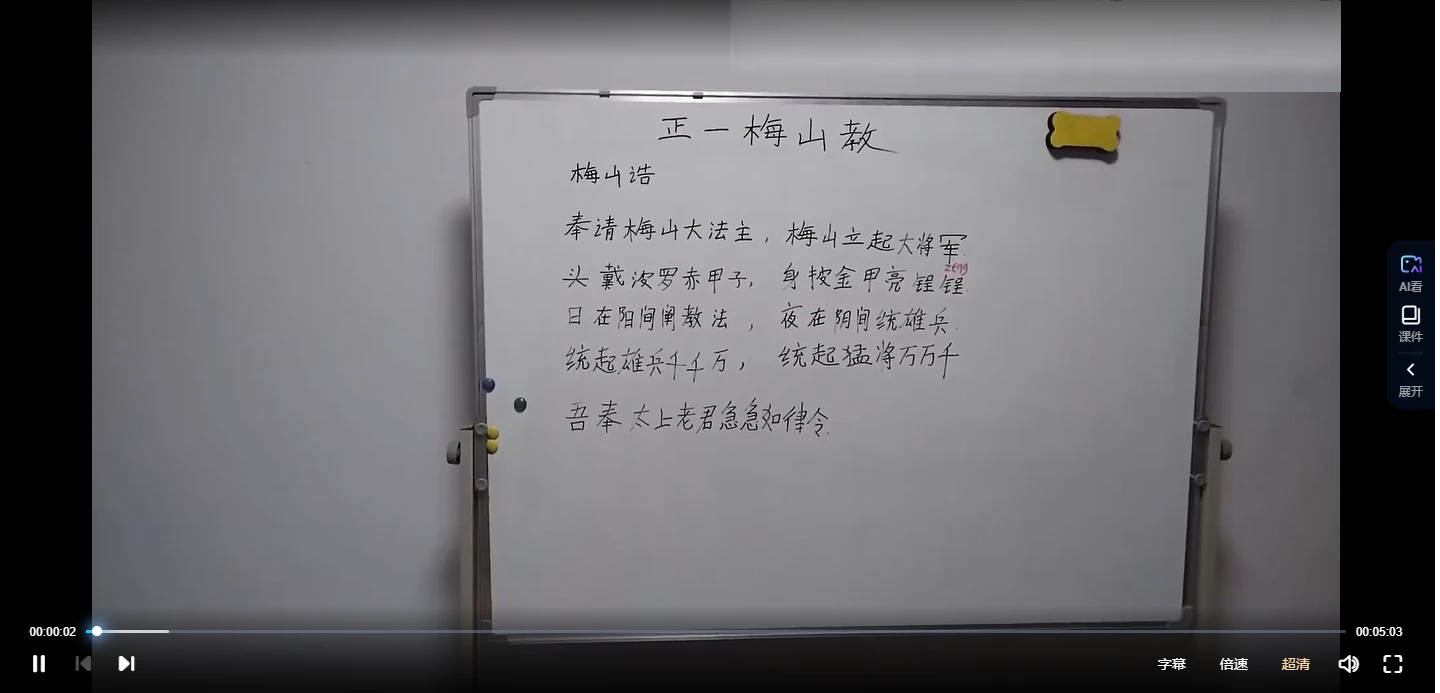 正一梅山教
梅山诰
奉请梅山大法主，梅山立起大将军.
zeng
头戴波罗赤甲子，身披金甲亮锃锃.
日在阳间阐教法，夜在阴间统雄兵.
统起雄兵千千万，统起猛将万万千
吾奉太上老君急急如律令.
AI看
课件
展开
00:00:02
00:05:03
字幕
倍速
超清